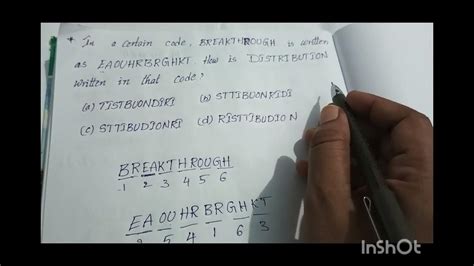 * In a certain code, BREAKTHROUGH is written
as EAOUHRBRGHKT. How is DISTRIBUTION
written in that code?
(a) TISTBUONDIRI (b) STTIBUONRIDI
(c) STTIBUDIONRI (d) RISTTIBUDION
BREAKTHROUGH
1 2 3 4 5 6
EA OU HR BR GH KT
2 5 4 1 6 3
InShOt